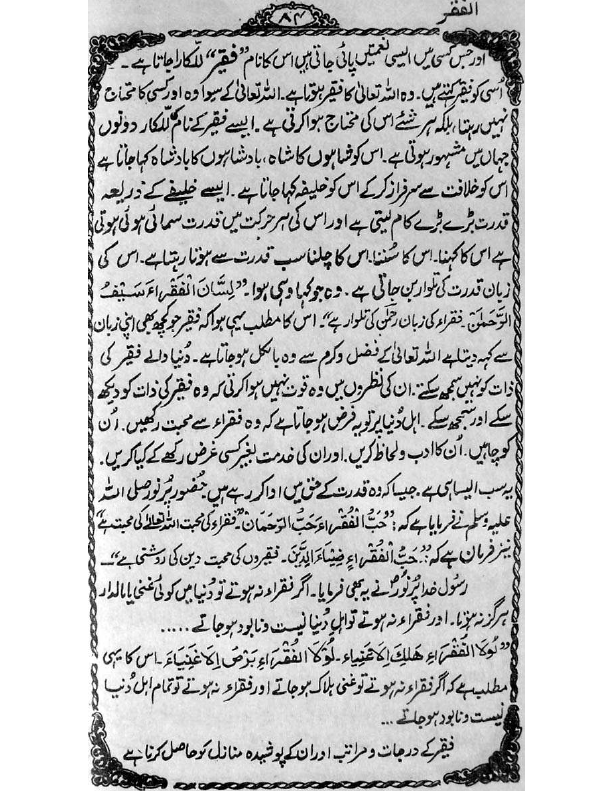 الفقر
۸۴
اور جس کسی میں ایسی نعمتیں پائی جاتی ہیں اس کا نام "فقیر" للکارا جاتا ہے۔
اُسی کو فقیر کہتے ہیں۔ وہ اللہ تعالیٰ کا فقیر ہوتا ہے۔ اللہ تعالیٰ کے سوا وہ اور کسی کا محتاج
نہیں رہتا، بلکہ ہر شئے اس کی محتاج ہوا کرتی ہے۔ ایسے فقیر کے نام کی للکار دونوں
جہاں میں مشہور ہوتی ہے۔ اس کو شاہوں کا شاہ، بادشاہوں کا بادشاہ کہا جاتا ہے
اس کو خلافت سے سرفراز کر کے اس کو خلیفہ کہا جاتا ہے۔ ایسے خلیفے کے ذریعہ
قدرت بڑے بڑے کام لیتی ہے اور اس کی ہر حرکت میں قدرت سمائی ہوئی ہوتی
ہے اس کا کہنا۔ اس کا سُننا۔ اس کا چلنا سب قدرت سے ہوتا رہتا ہے۔ اس کی
زبان قدرت کی تلوار بن جاتی ہے۔ وہ جو کہا وہی ہوا۔ "لِسَانُ الْفُقَرَاءِ سَیْفُ
الرَّحْمٰنَ۔ فقراء کی زبان رحمٰن کی تلوار ہے"۔ اس کا مطلب یہی ہوا کہ فقیر جو کچھ بھی اپنی زبان
سے کہہ دیتا ہے اللہ تعالیٰ کے فضل و کرم سے وہ بالکل ہو جاتا ہے۔ دُنیا والے فقیر کی
ذات کو نہیں سمجھ سکتے۔ ان کی نظروں میں وہ قوت نہیں ہوا کرتی کہ وہ فقیر کی ذات کو دیکھ
سکے اور سمجھ سکے۔ اہل دُنیا پر تو یہ فرض ہو جاتا ہے کہ وہ فقراء سے محبت رکھیں۔ اُن
کو چاہیں۔ اُن کا ادب و لحاظ کریں۔ اور ان کی خدمت بغیر کسی غرض رکھے کے کیا کریں۔
یہ سب ایسا ہی ہے۔ جیسا کہ وہ قدرت کے حق میں ادا کر رہے ہیں۔ حُضور پُر نور صلی اللہ
علیہ وسلم نے فرمایا ہے کہ: "حُبُّ الْفُقَرَاءَ حَبُّ الرَّحْمَانَ"۔ فقراء کی محبت اللہ تعالےٰ کی محبت ہے"
نیز فرمان ہے کہ: "حَبُّ الْفُقَرَاءِ ضِیَاءَ الدِّیْنَ۔ فقیروں کی محبت دین کی روشنی ہے"۔
رسول خدا پُر نورؐ نے یہ بھی فرمایا۔ اگر فقراء نہ ہوتے تو دُنیا میں کوئی غنی یا مالدار
ہرگز نہ ہوتا۔ اور فقراء نہ ہوتے تو اہلِ دُنیا نیست و نابود ہو جاتے .....
"لَوْلَا الْفُقَرَاءِ هَلَكَ الْاَغْنِیَاء۔ لَوْلَا الْفُقَرَاءِ بَرْصَ الْاَغْنِیَاءَ۔ اس کا یہی
مطلب ہے کہ اگر فقراء نہ ہوتے تو غنی ہلاک ہو جاتے اور فقراء نہ ہوتے تو تمام اہل دُنیا
نیست و نابود ہو جاتے ...
فقیر کے درجات و مراتب اور ان کے پوشیدہ منازل کو حاصل کرنا ہے